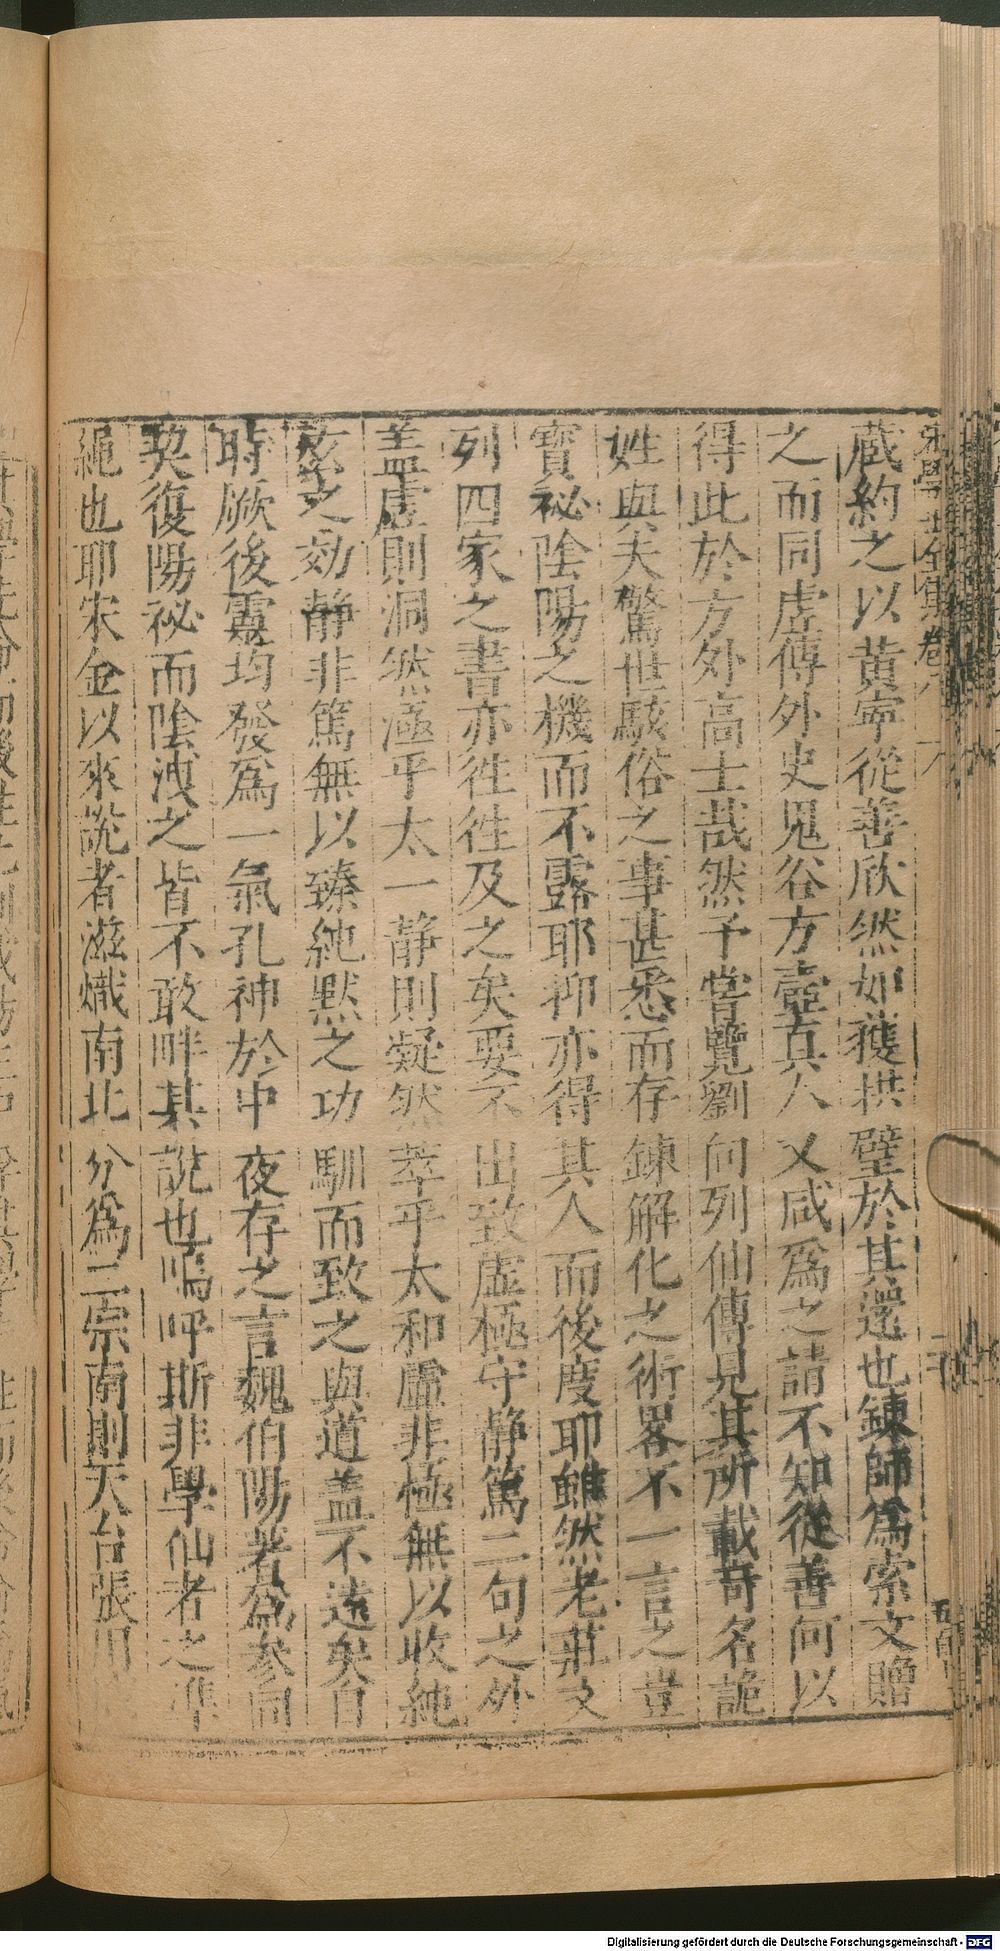 蔵約之以黄寧從善欣然如獲拱璧於其還也錬師爲索文贈
之而同虗傳外史鬼谷方壼真人又咸爲之請不知從善何以
得此於方外髙士哉然予嘗覽劉向列仙傳見其所載竒名詭
姓與夫驚世駭俗之事甚悉而存錬解化之術畧不一言之豈
寳祕陰陽之機而不露耶抑亦得其人而後度耶雖然老莊文
列四家之書亦徃徃及之矣要不出致虗極守静篤二句之外
盖虗則洞然涵乎太一静則凝然萃乎太和虗非極無以收純
玄之効静非篤無以臻純黙之功馴而致之與道盖不逺矣自
時厥後靈均發爲一氣孔神於中夜存之言魏伯陽著爲参同
契復陽祕而陰洩之皆不敢畔其說也嗚呼斯非學仙者之準
繩也耶宋金以來說者滋熾南北分爲二宗南則天台張用
Digitalisierung gefördert durch die Deutsche Forschungsgemeinschaft - DFG